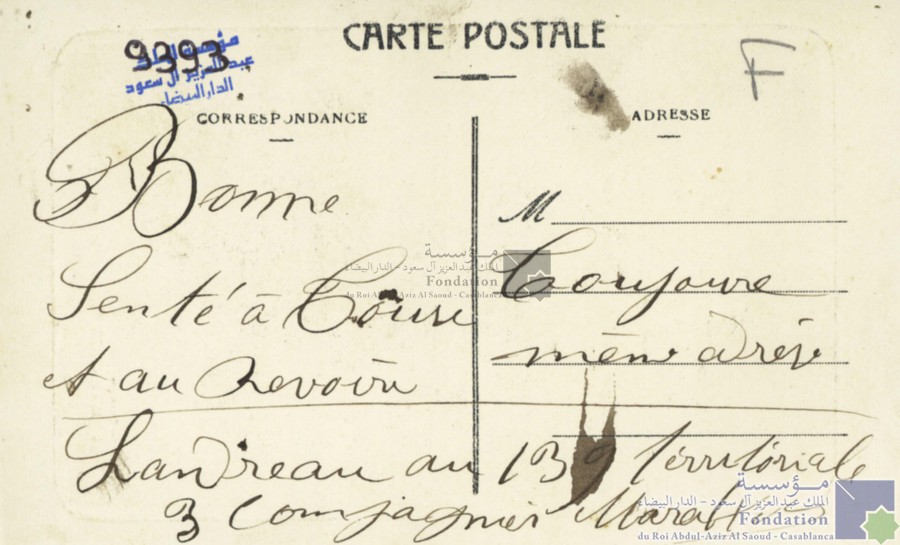 CARTE POSTALE
9393
مؤسسة الملك
عبد العزيز آل سعود
الدار البيضاء
F
CORRESPONDANCE
ADRESSE
Bonne
Senté à Tous
et au Revoir
M
Toujoure
mème adrèse
Landreau au 139 Térritoriale
3 Compagnier
مؤسسة
الملك عبد العزيز آل سعود - الدار البيضاء
Fondation
du Roi Abdul-Aziz Al Saoud - Casablanca
مؤسسة
الملك عبد العزيز آل سعود - الدار البيضاء
Fondation
du Roi Abdul-Aziz Al Saoud - Casablanca